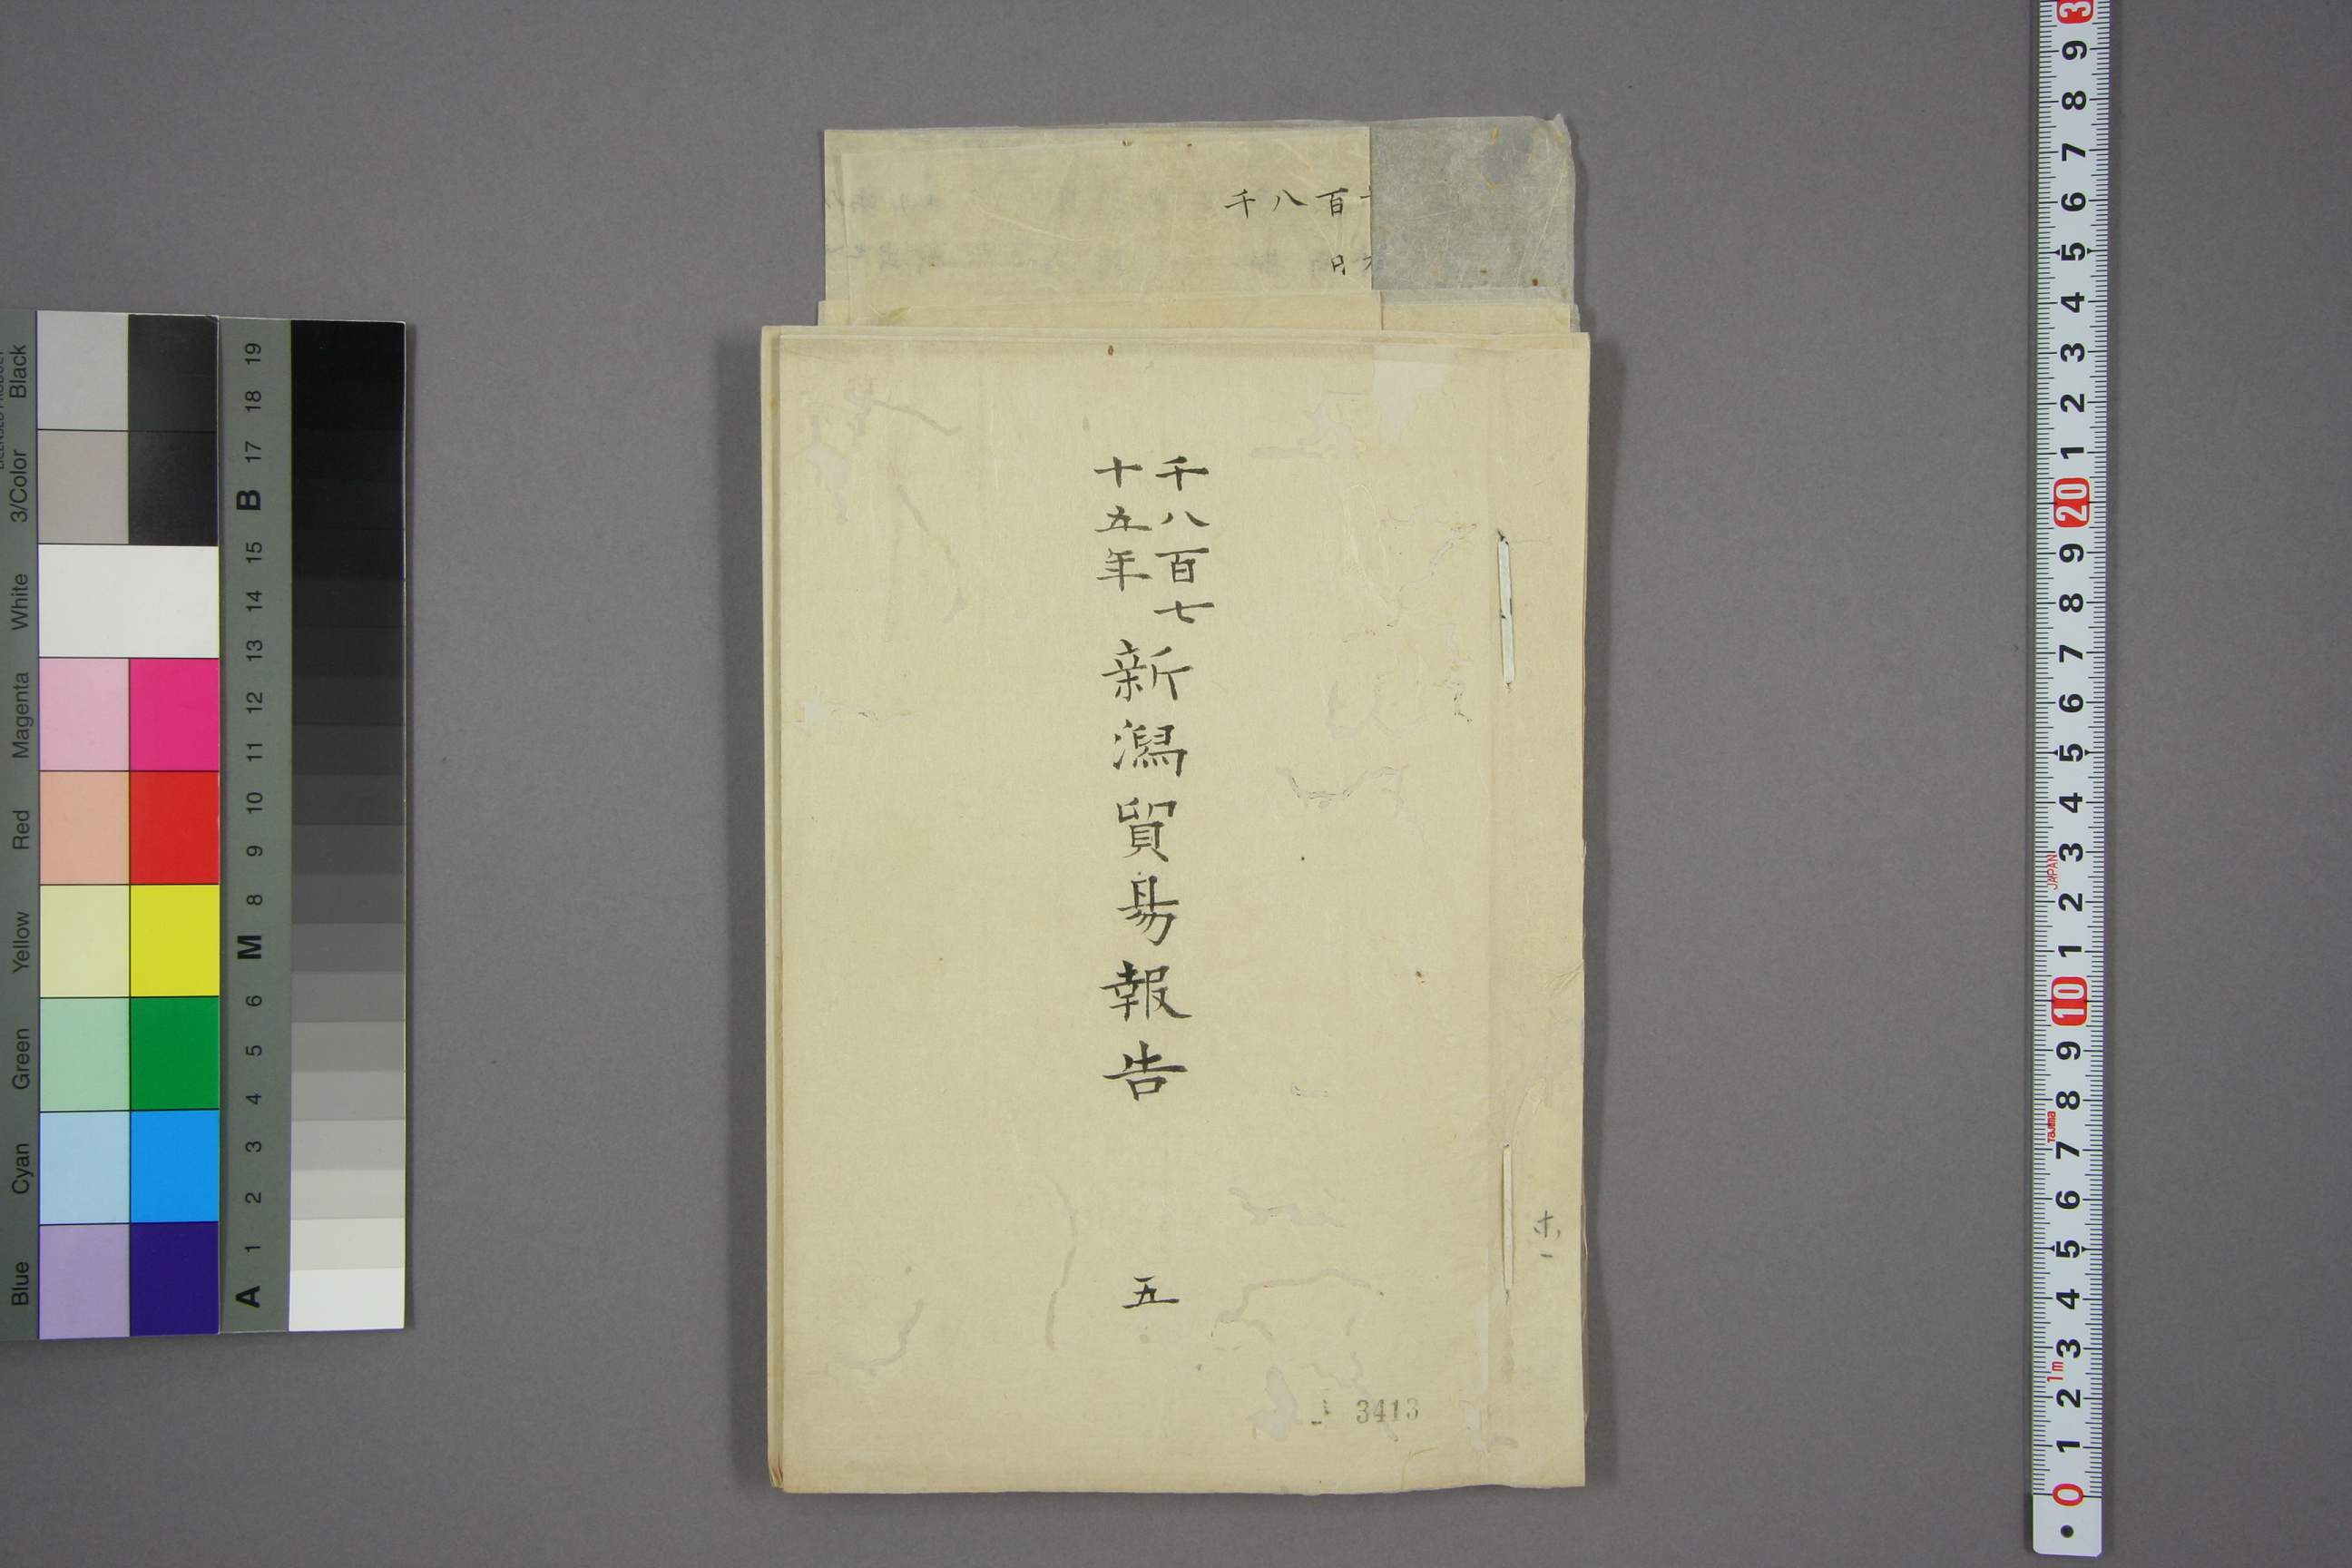 千八百
日
千八百七
十五年
新潟貿易報告
五
ホ一
3413
Black
3/Color
White
Magenta
Red
Yellow
Green
Cyan
Blue
19
18
17
B
15
14
13
12
11
10
9
8
M
6
5
4
3
2
1
A
3
9
8
7
6
5
4
3
2
1
20
9
8
7
6
5
4
3
JAPAN
2
1
10
9
8
Tajima
7
6
5
4
3
1m
2
1
0